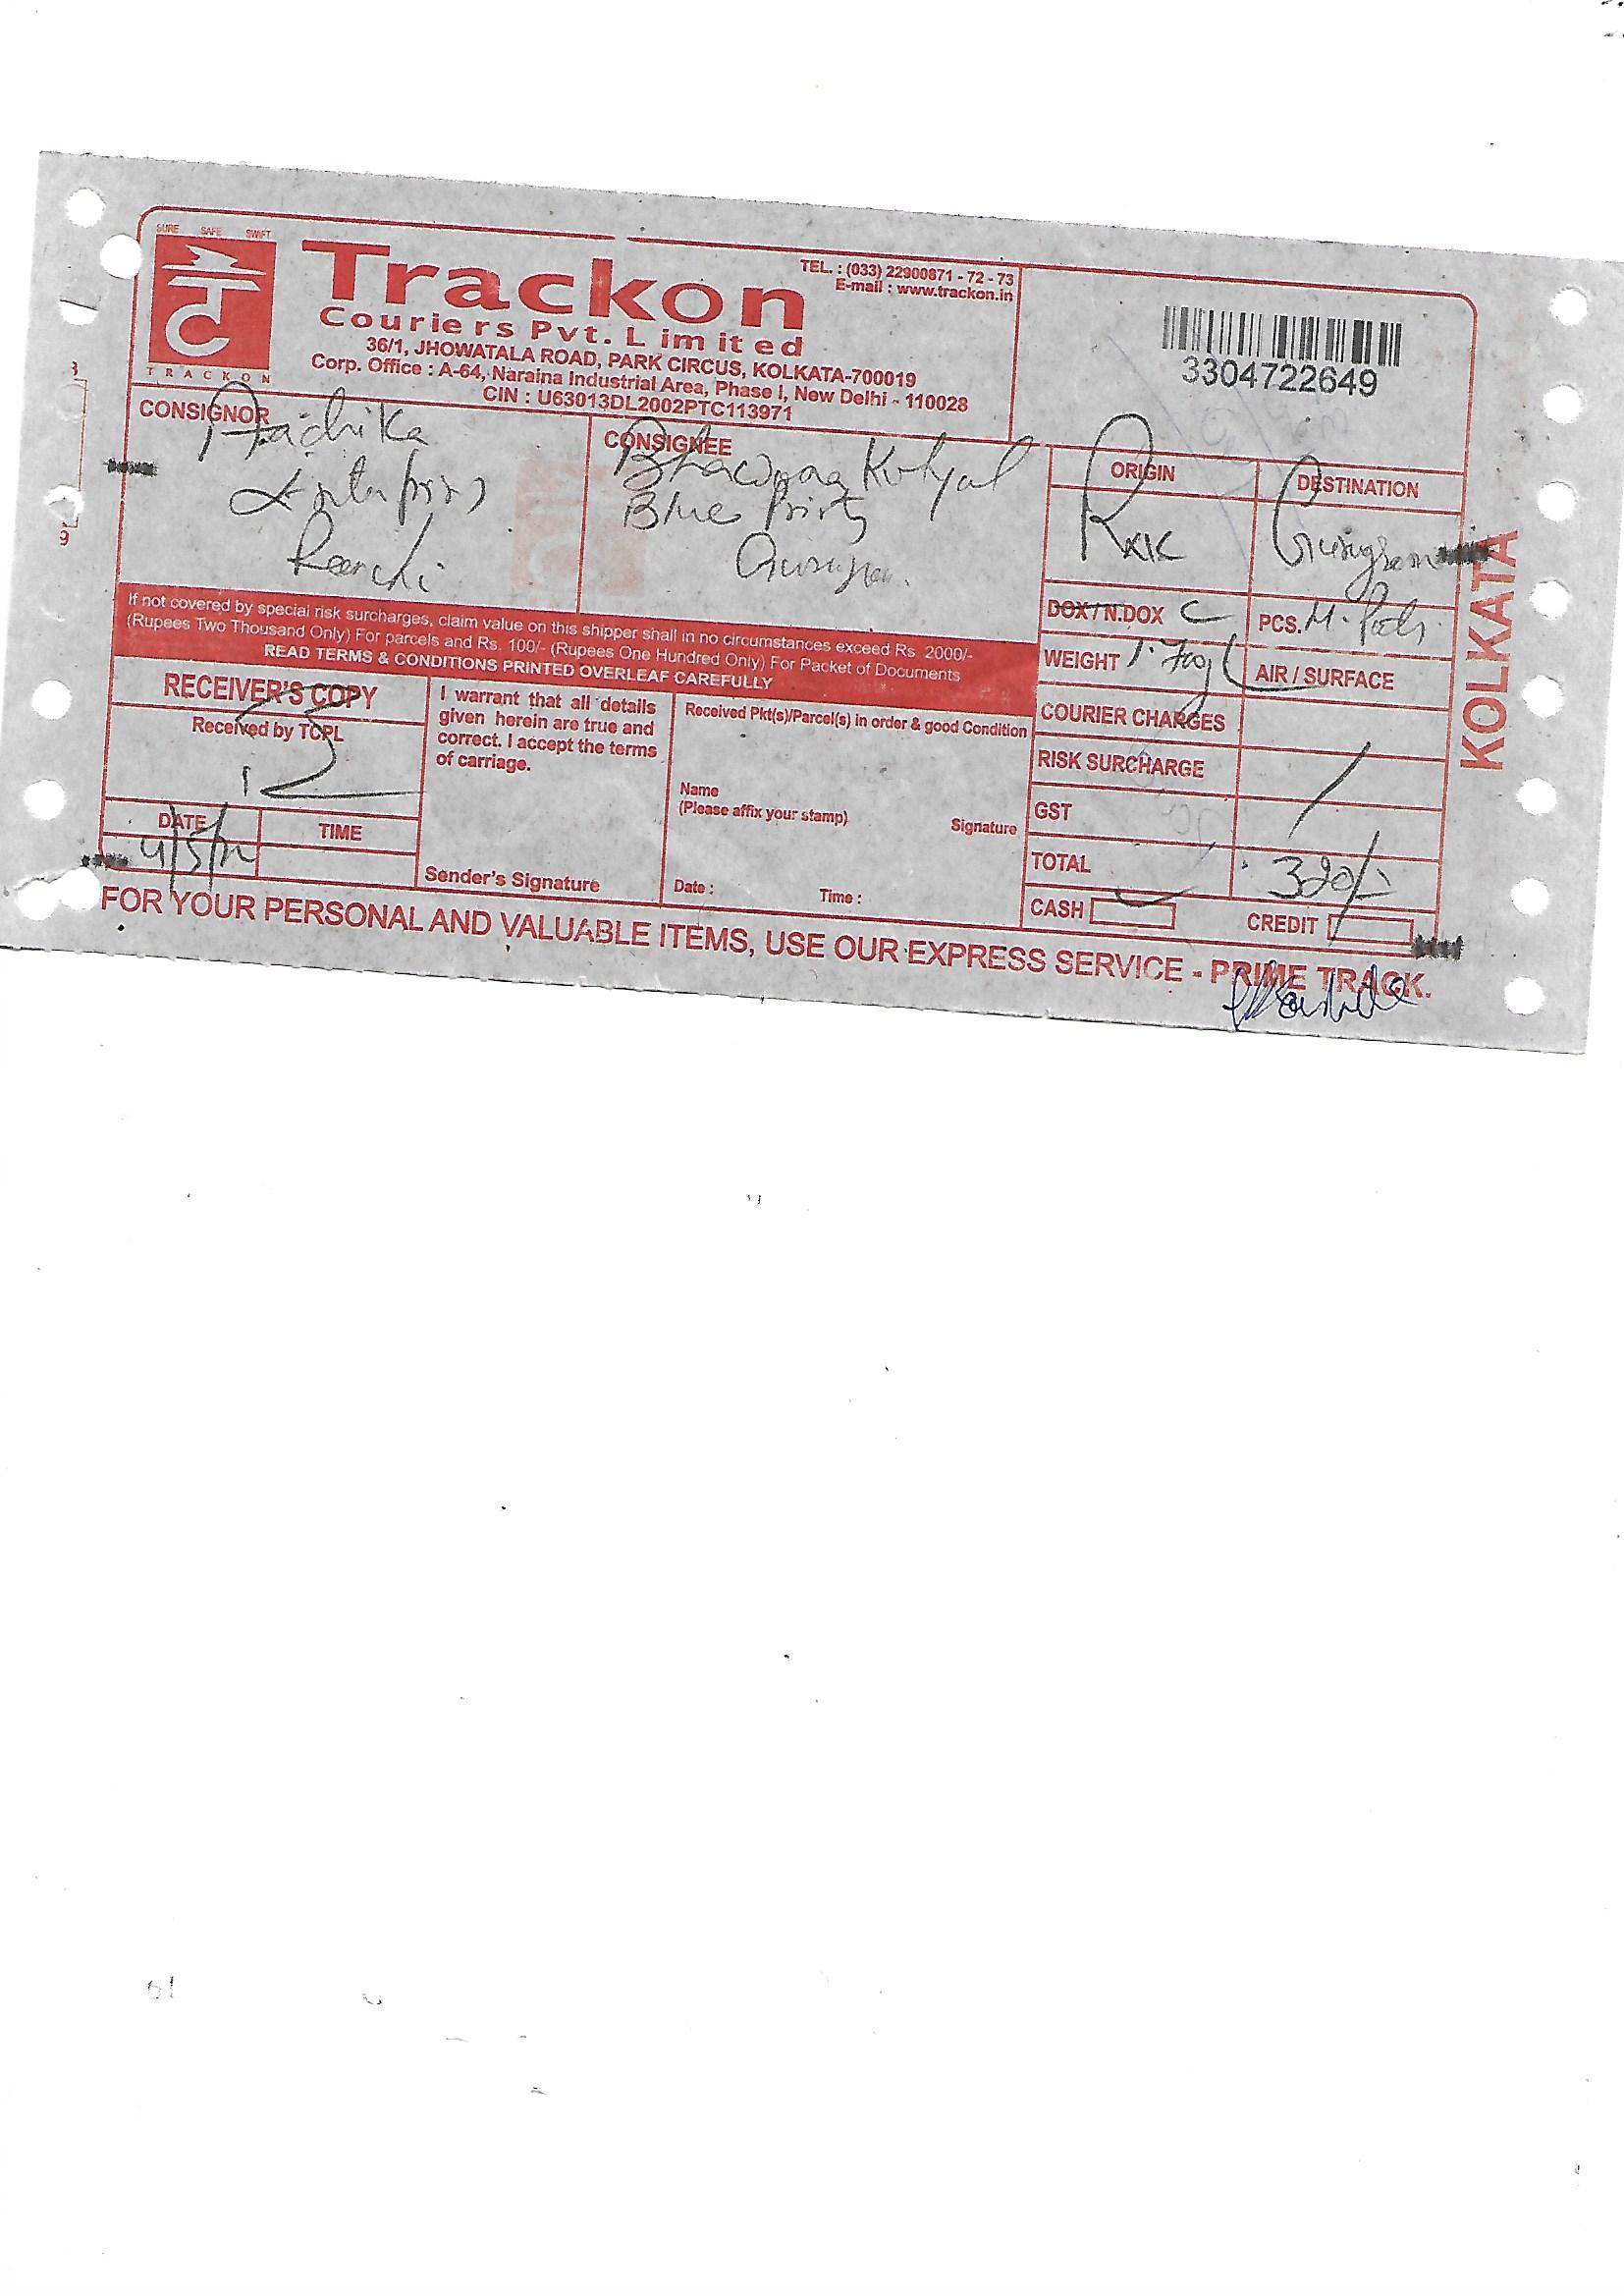 SURE SAFE SWIFT
TRACKON
Trackon
Couriers Pvt. Limited
36/1, JHOWATALA ROAD, PARK CIRCUS, KOLKATA-700019
Corp. Office : A-64, Naraina Industrial Area, Phase I, New Delhi - 110028
CIN : U63013DL2002PTC113971
TEL. : (033) 22900871 - 72 - 73
E-mail : www.trackon.in
3304722649
CONSIGNOR
Ranchi
CONSIGNEE
Blue Prints
ORIGIN
DESTINATION
Gurugram
DOX / N.DOX
PCS.
WEIGHT
AIR / SURFACE
COURIER CHARGES
RISK SURCHARGE
GST
TOTAL 320/-
CASH
CREDIT
If not covered by special risk surcharges, claim value on this shipper shall in no circumstances exceed Rs 2000/-
(Rupees Two Thousand Only) For parcels and Rs. 100/- (Rupees One Hundred Only) For Packet of Documents
READ TERMS & CONDITIONS PRINTED OVERLEAF CAREFULLY
RECEIVER'S COPY
Received by TCPL
DATE
TIME
I warrant that all details
given herein are true and
correct. I accept the terms
of carriage.
Sender's Signature
Received Pkt(s)/Parcel(s) in order & good Condition
Name
(Please affix your stamp)
Signature
Date :
Time :
KOLKATA
FOR YOUR PERSONAL AND VALUABLE ITEMS, USE OUR EXPRESS SERVICE - PRIME TRACK.